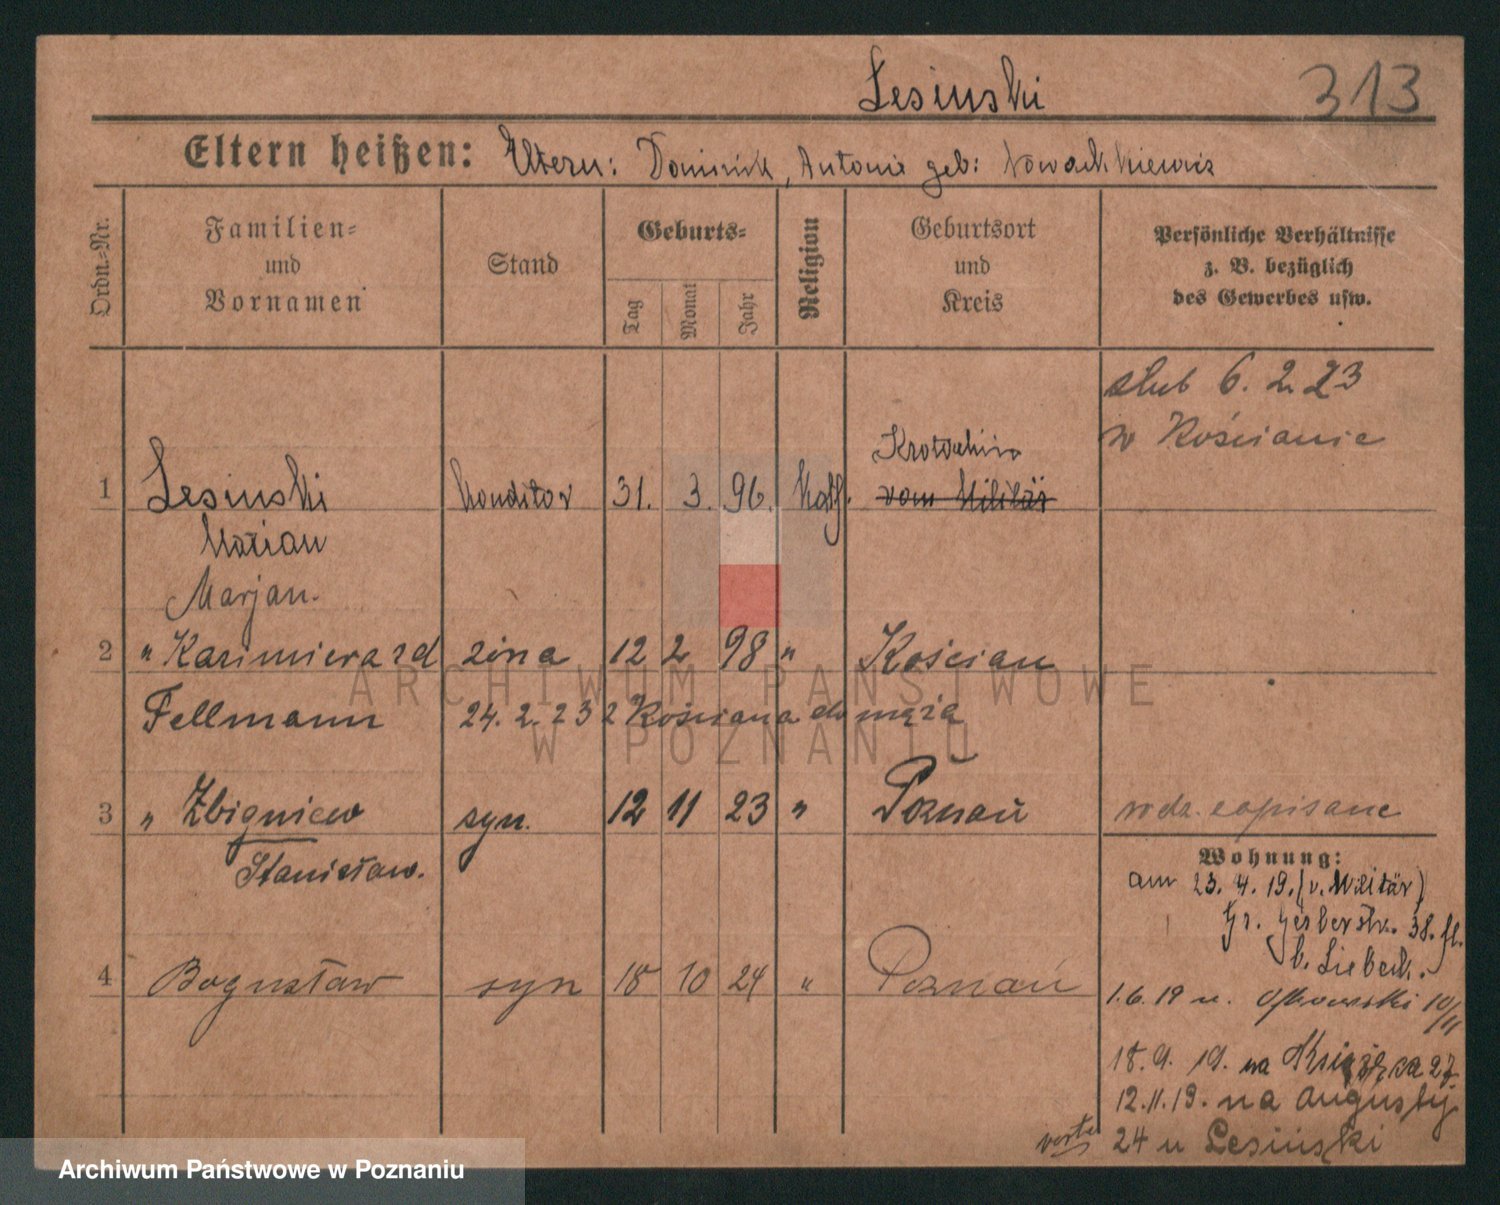 Lesinski 313
Eltern heißen: Eltern: Dominik, Antonie geb:
Ordn.-Nr.
Familien- und Vornamen
Stand
Geburts-
Tag Monat Jahr
Religion
Geburtsort und Kreis
Persönliche Verhältnisse z. B. bezüglich des Gewerbes usw.
ślub 6. 2. 23
w Kościanie
Krotoschin
1 Lesinski Konditor 31. 3. 96. Kath. vom Militär
Marian
Marjan.
2 " Kazimiera zd żona 12 2 98 " Kościan
Fellmann 24. 2. 23 z Kościana do męża
3 " Zbigniew syn. 12 11 23 " Poznań
Stanisław.
Wohnung:
am 23. 4. 19. (v. Militär)
Gr. Gerberstr. 38.
b.
4 Bogusław syn 18 10 24 " Poznań
1.6.19 u. 10/II
18. 9. 19. na 27
12.11.19. na Augusty
verte 24 u Lesiński
ARCHIWUM PAŃSTWOWE
W POZNANIU
Archiwum Państwowe w Poznaniu